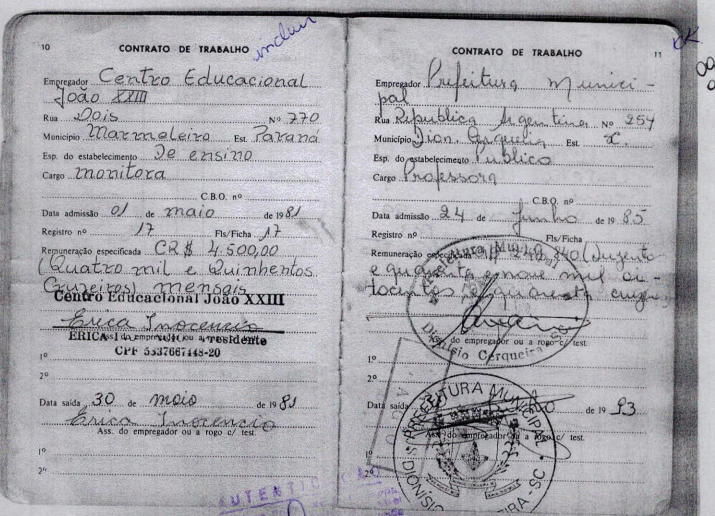 10
CONTRATO DE TRABALHO
incluir
Empregador Centro Educacional
João XXIII
Rua Dois Nº 770
Município Marmeleiro Est. Paraná
Esp. do estabelecimento De ensino
Cargo monitora
C.B.O. nº
Data admissão 01 de maio de 1981
Registro nº 17 Fls/Ficha 17
Remuneração especificada CR$ 4.500,00
(Quatro mil e Quinhentos
Cruzeiros) mensais
Centro Educacional João XXIII
Erica Inocencio
Ass. do empregador ou a rogo c/ test.
ERICA Presidente
CPF 5537667448-20
1º
2º
Data saída 30 de maio de 1981
Erica Inocencio
Ass. do empregador ou a rogo c/ test.
1º
2º
AUTENTICAÇÃO
11
CONTRATO DE TRABALHO
Empregador Prefeitura Munici-
pal
Rua Republica Argentina Nº 254
Município Dion. Cerqueira Est.
Esp. do estabelecimento Público
Cargo Professora
C.B.O. nº
Data admissão 24 de Junho de 1985
Registro nº Fls/Ficha
Remuneração especificada (Duzento
e quarenta e nove mil oi-
tocentos e quarenta
Dionísio Cerqueira
Ass. do empregador ou a rogo c/ test.
1º
2º
Data saída de 1993
Ass. do empregador ou a rogo c/ test.
1º
2º
PREFEITURA MUNICIPAL
DIONÍSIO CERQUEIRA - SC